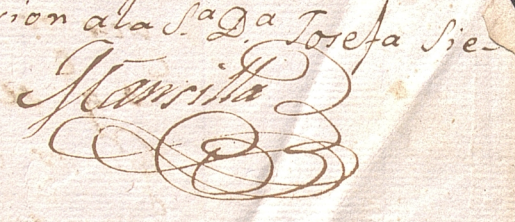 cion a la S.ª D.ª Josefa Sie-
Mansilla